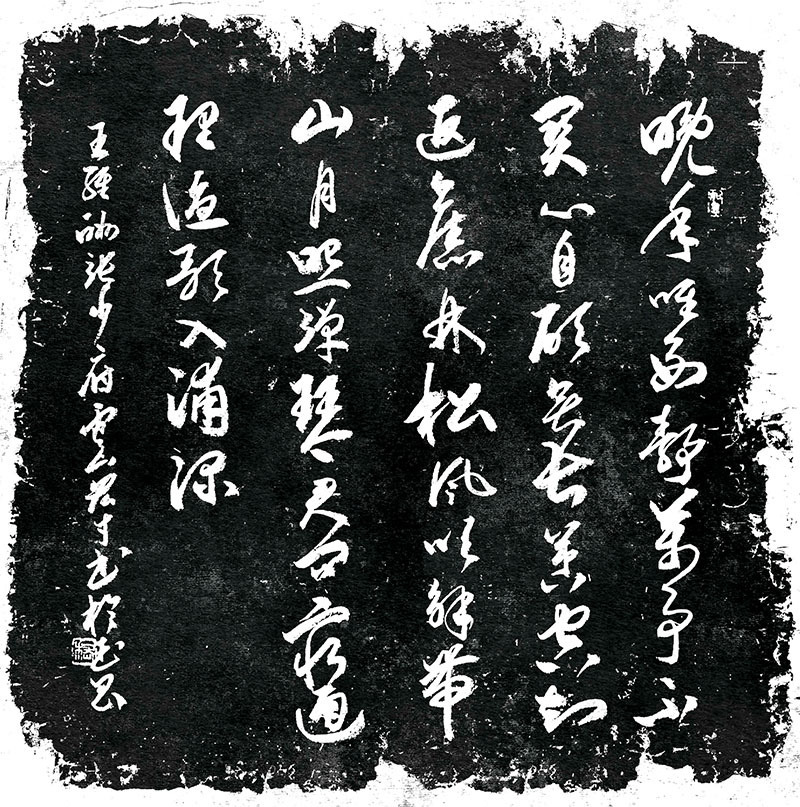 晚年唯好靜萬事不
関心自顧無長策空知
返舊林松風吹解帶
山月照彈琴君問窮通
理漁歌入浦深
王維酬張少府